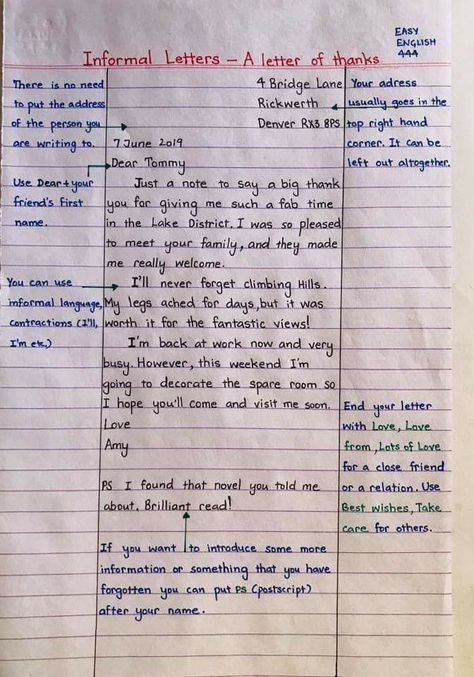 EASY
ENGLISH
444
Informal Letters – A letter of thanks
There is no need
to put the address
of the person you
are writing to.
4 Bridge Lane
Rickwerth
Denver RX3 8PS
Your adress
usually goes in the
top right hand
corner. It can be
left out altogether.
7 June 2019
Dear Tommy
Use Dear + your
friend's first
name.
Just a note to say a big thank
you for giving me such a fab time
in the Lake District. I was so pleased
to meet your family, and they made
me really welcome.
You can use
informal language,
contractions (I'll,
I'm etc.)
I'll never forget climbing Hills.
My legs ached for days, but it was
worth it for the fantastic views!
I'm back at work now and very
busy. However, this weekend I'm
going to decorate the spare room so
I hope you'll come and visit me soon.
Love
Amy
End your letter
with Love, Love
from, Lots of Love
for a close friend
or a relation. Use
Best wishes, Take
care for others.
PS I found that novel you told me
about. Brilliant read!
If you want to introduce some more
information or something that you have
forgotten you can put PS (postscript)
after your name.